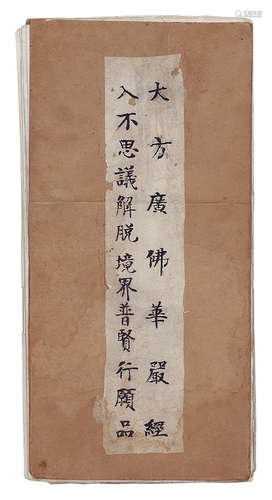 大方廣佛華嚴經
入不思議解脫境界普賢行願品